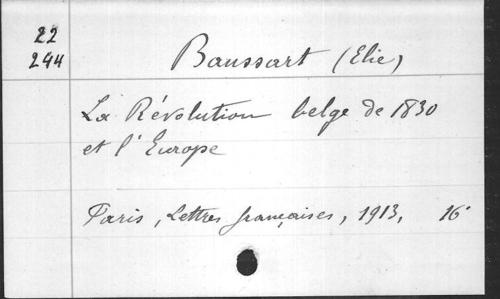 22
244
Baussart (Elie)
La Révolution belge de 1830
et l'Europe
Paris, Lettres françaises, 1913, 16°